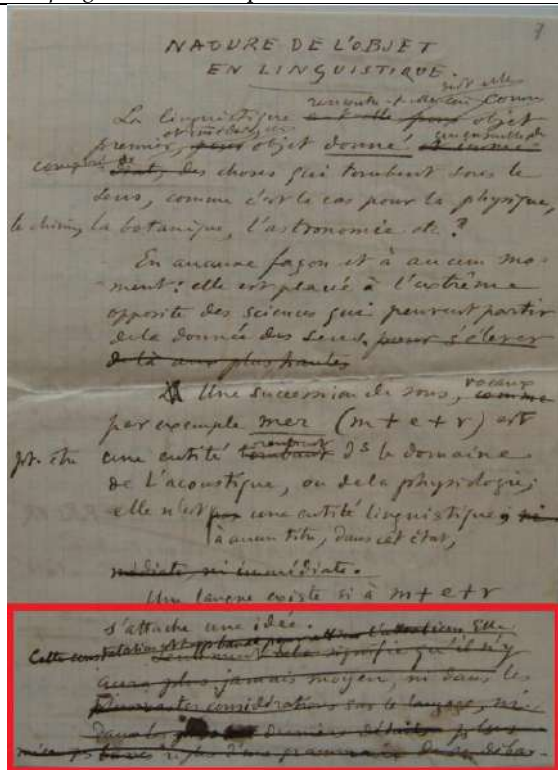 3
NATURE DE L'OBJET
EN LINGUISTIQUE.
soit elle
La linguistique rencontre-t-elle comme objet
premier, objet donné
des choses qui tombent sous le
sens, comme c'est le cas pour la physique,
la chimie, la botanique, l'astronomie etc ?
En aucune façon et à aucun mo-
ment : elle est placée à l'extrême
opposite des sciences qui peuvent partir
de la donnée des sens. pour s'élever
de là aux plus hautes
Une succession de sons vocaux, comme
par exemple mer (m + e + r) est
pt. être une entité rentrant ds le domaine
de l'acoustique, ou de la physiologie;
elle n'est pas une entité linguistique, ni
à aucun titre, dans cet état,
médiate, ni immédiate.
Une langue existe si à m + e + r
s'attache une idée.
Cette constatation
Seulement cela signifie qu'il n'y
aura plus jamais moyen, ni dans les
considérations sur le langage, ni
dans les derniers détails
règles d'une grammaire de se débar-